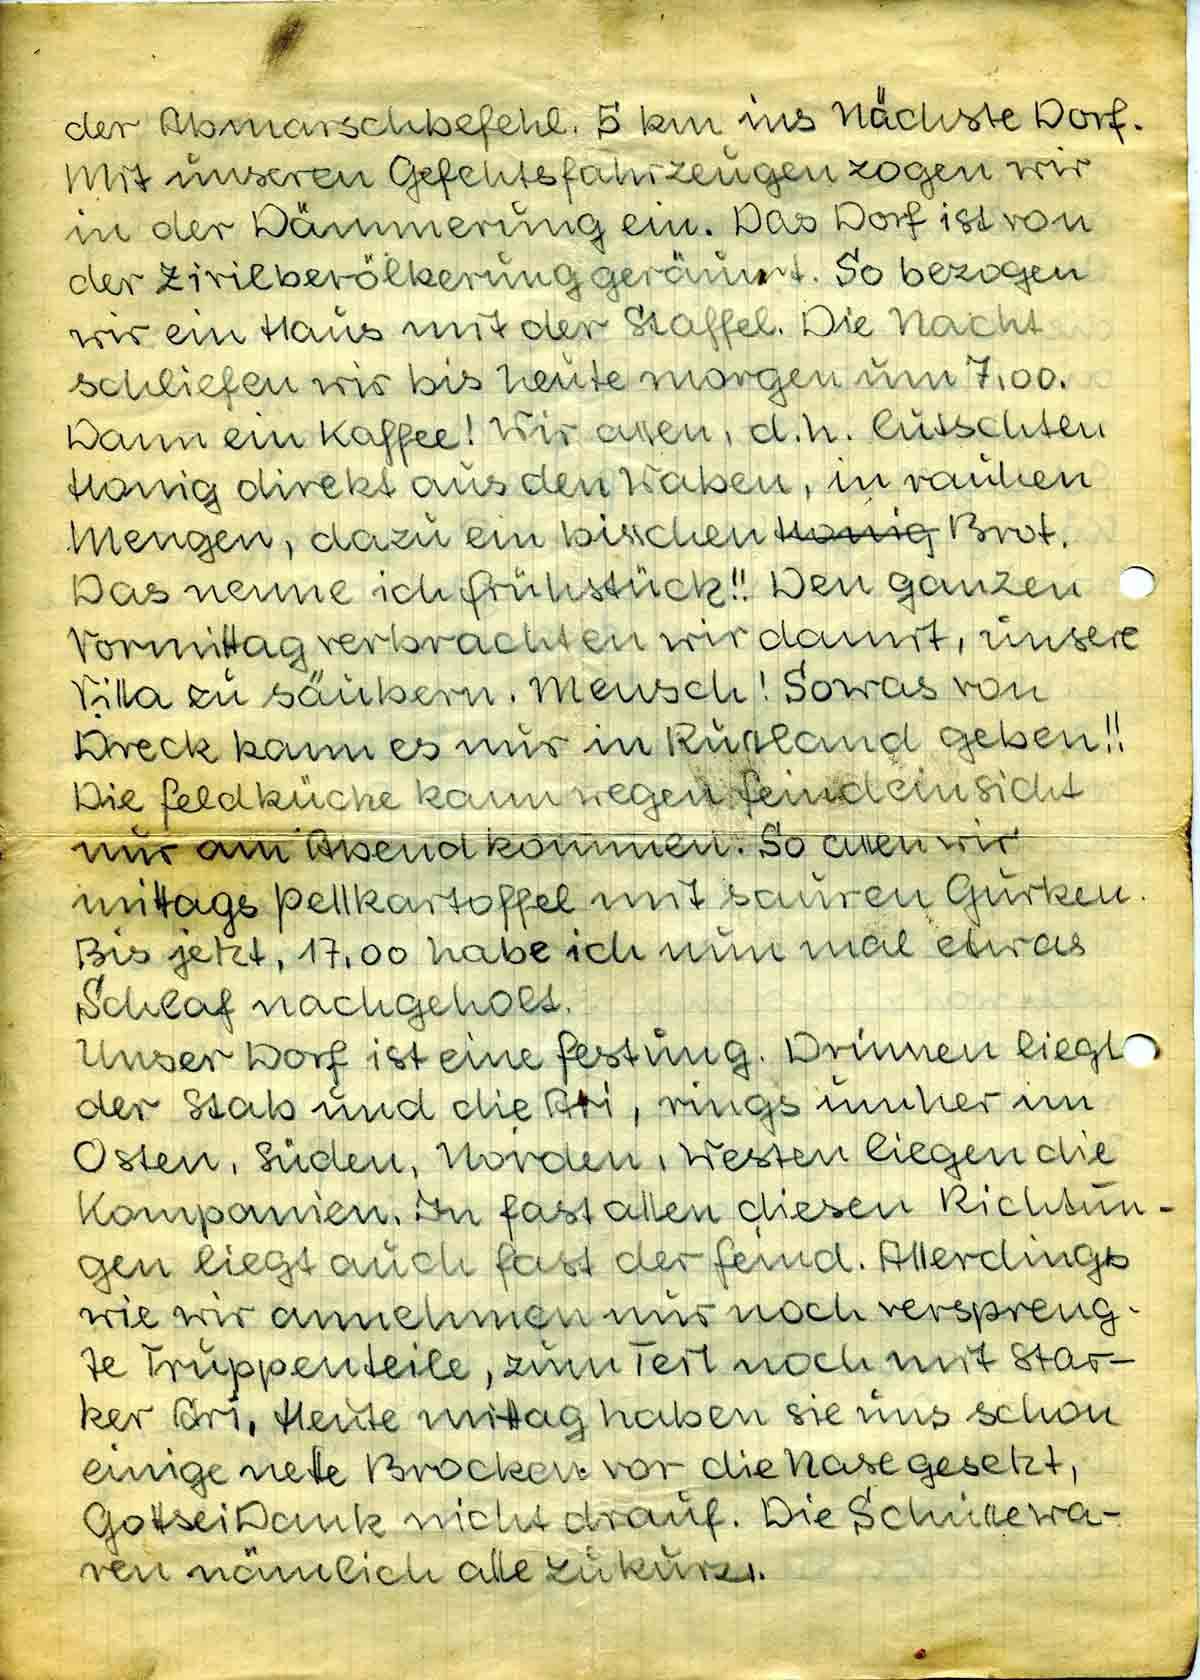 der Abmarschbefehl. 5 km ins Nächste Dorf.
Mit unseren Gefechtsfahrzeugen zogen wir
in der Dämmerung ein. Das Dorf ist von
der Zivilbevölkerung geräumt. So bezogen
wir ein Haus mit der Staffel. Die Nacht
schliefen wir bis heute morgen um 7.00.
Dann ein Kaffee! Wir assen, d.h. lutschten
Honig direkt aus den Waben, in rauhen
Mengen, dazu ein bisschen Honig Brot.
Das nenne ich Frühstück!! Den ganzen
Vormittag verbrachten wir damit, unsere
Villa zu säubern. Mensch! Sowas von
Dreck kann es nur in Russland geben!!
Die Feldküche kann wegen Feindeinsicht
nur am Abend kommen. So assen wir
mittags Pellkartoffel mit sauren Gurken.
Bis jetzt, 17.00 habe ich nun mal etwas
Schlaf nachgeholt.
Unser Dorf ist eine Festung. Drinnen liegt
der Stab und die Ari, rings umher im
Osten, Süden, Norden, Westen liegen die
Kompanien. In fast allen diesen Richtun-
gen liegt auch fast der Feind. Allerdings
wie wir annehmen nur noch verspreng-
te Truppenteile, zum Teil noch mit star-
ker Ari. Heute mittag haben sie uns schon
einige nette Brocken vor die Nase gesetzt,
Gottsei Dank nicht drauf. Die Schüsse wa-
ren nämlich alle zu kurz.